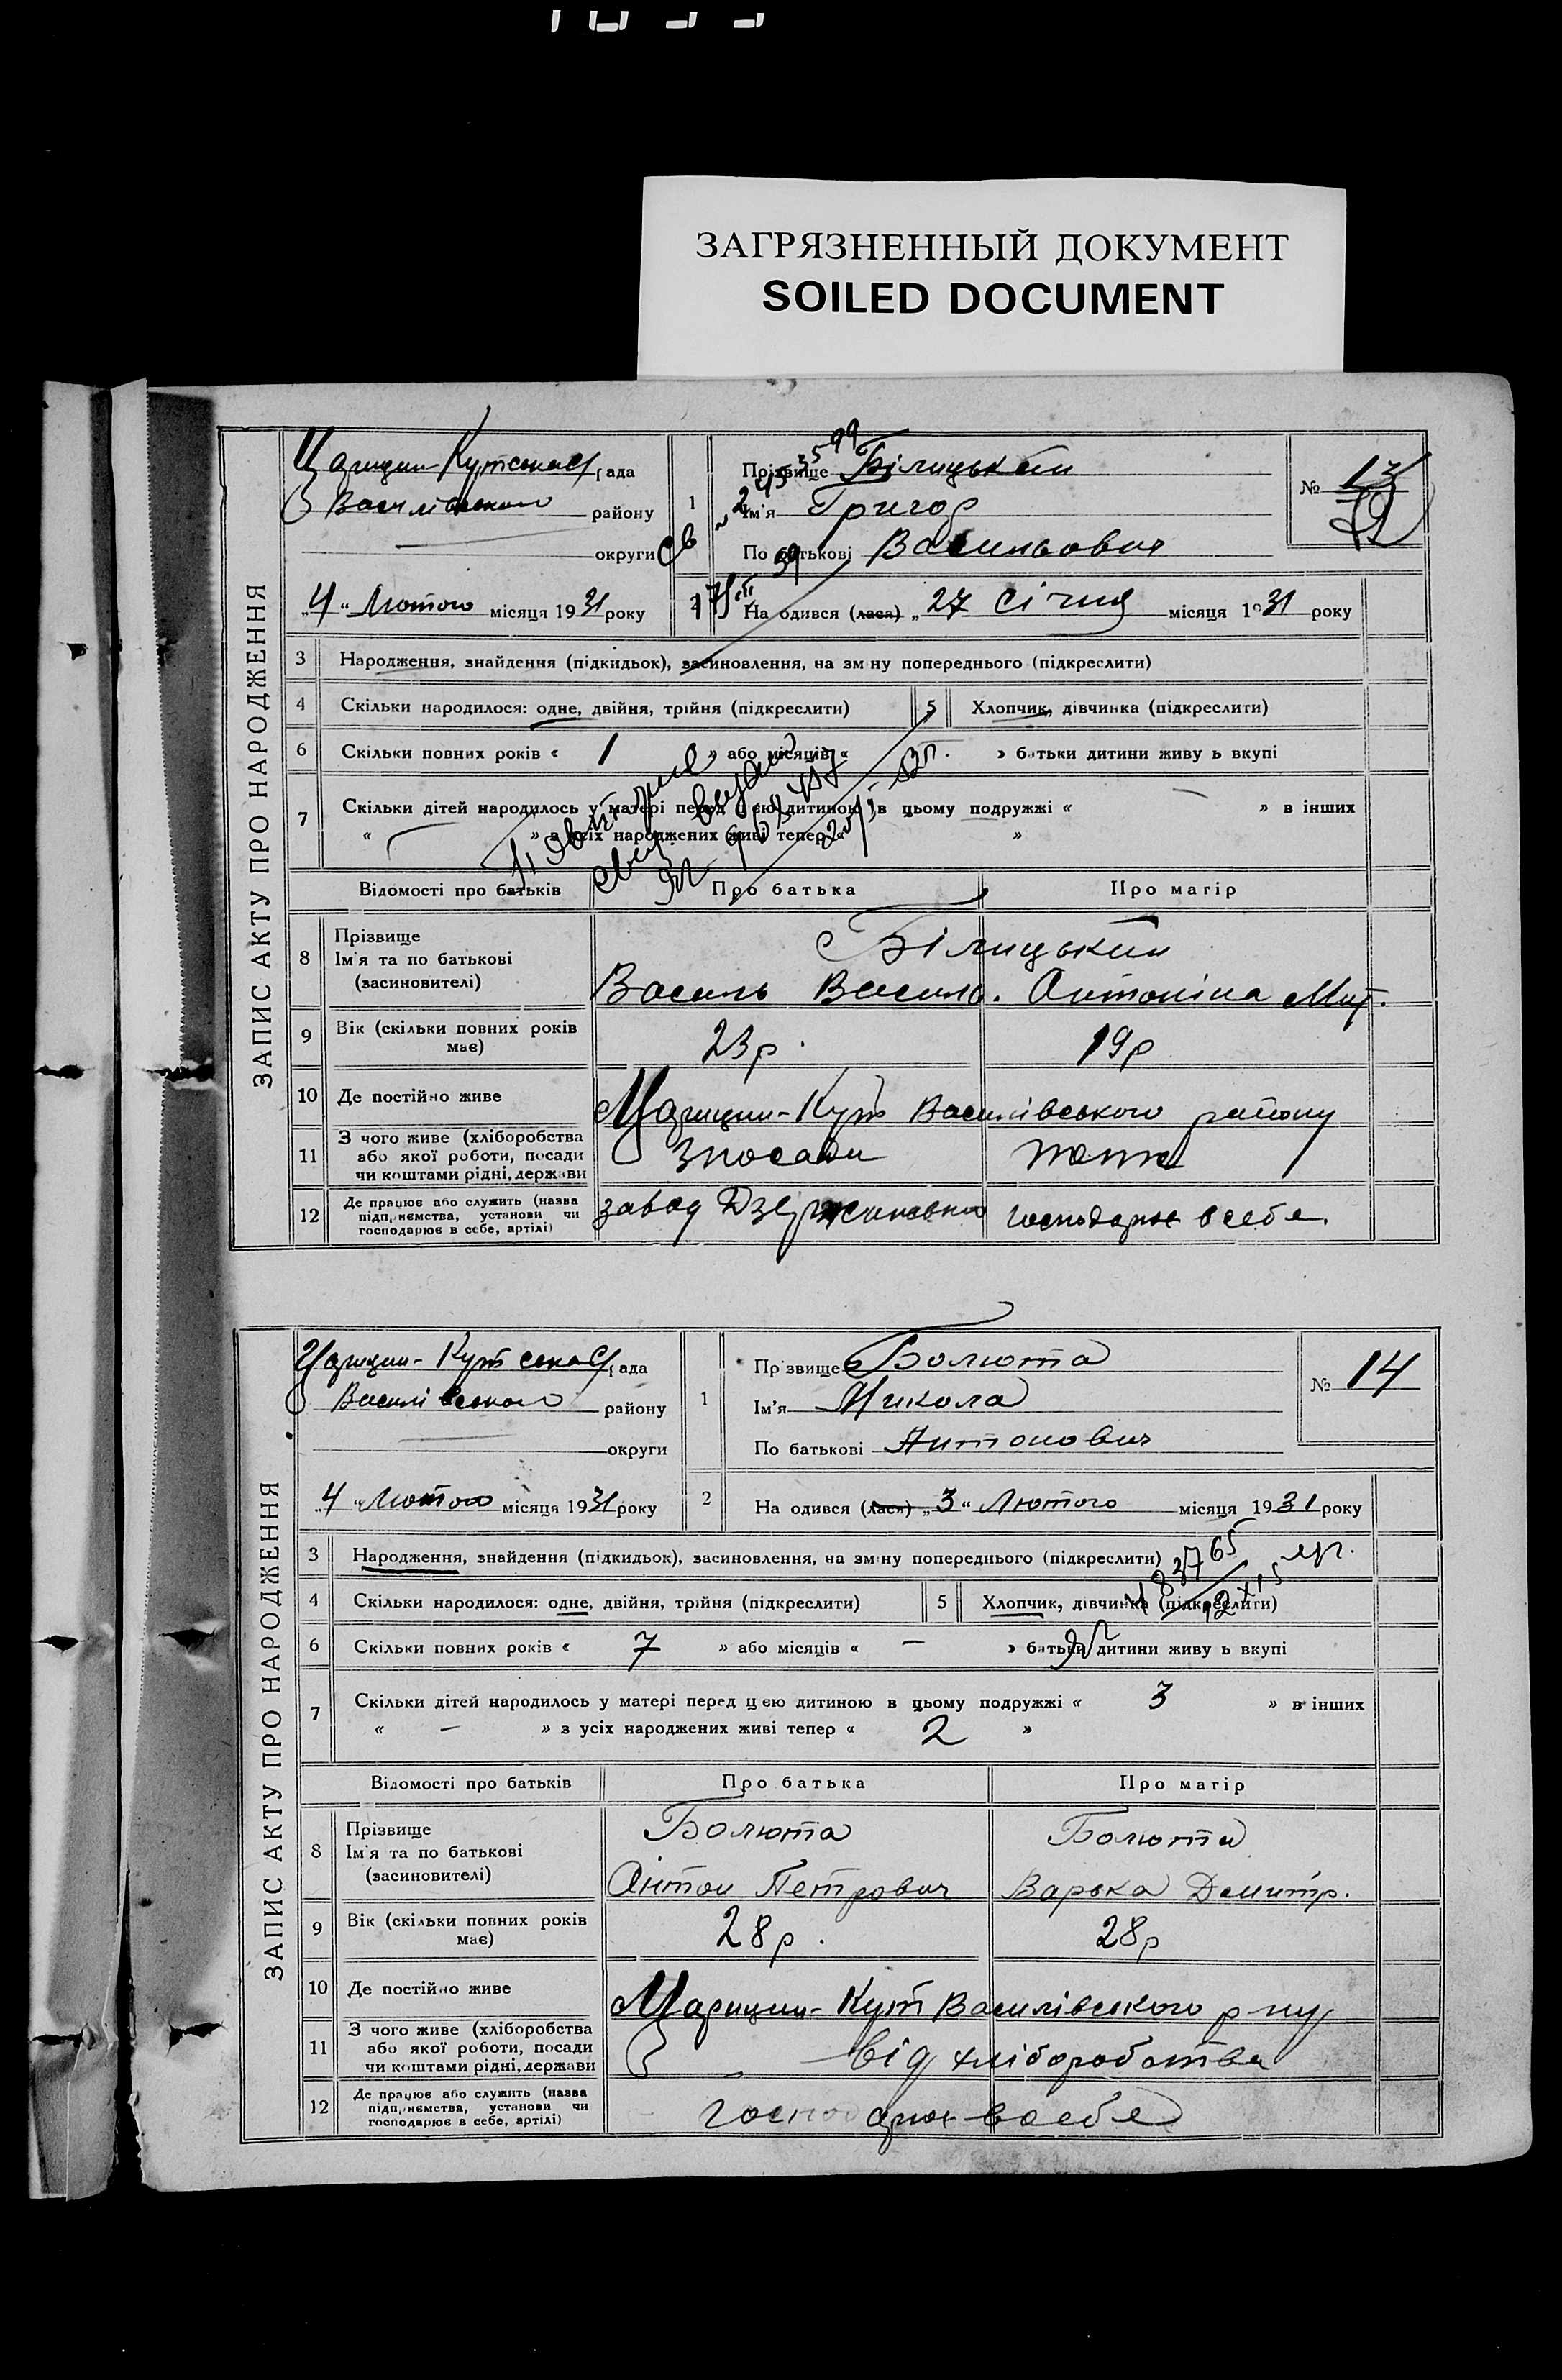 ЗАГРЯЗНЕННЫЙ ДОКУМЕНТ
SOILED DOCUMENT
ЗАПИС АКТУ ПРО НАРОДЖЕННЯ
Царицин-Кутська рада
Василівського району
округи
„4" Лютого місяця 1931 року
1 Прізвище Білицький
Ім'я Григор
По батькові Васильович
№ 13
2 На одився (лася) „27 Січня місяця 1931 року
3 Народження, знайдення (підкидьок), засиновлення, на зм ну попереднього (підкреслити)
4 Скільки народилося: одне, двійня, трійня (підкреслити) 5 Хлопчик, дівчинка (підкреслити)
6 Скільки повних років « 1 » або місяців « » батьки дитини живу ь вкупі
7 Скільки дітей народилось у матері перед цією дитиною в цьому подружжі « — » в інших
« » з усіх народжених живі тепер « »
Повторне
Відомості про батьків Про батька Про матір
8 Прізвище
Ім'я та по батькові
(засиновителі)
Білицький
Василь Василь. Антоніна Мит.
9 Вік (скільки повних років має) 23 р. 19 р
10 Де постійно живе Царицин-Кут Василівського району
11 З чого живе (хліборобства
або якої роботи, посади
чи коштами рідні, держави
З посади
12 Де працює або служить (назва
підприємства, установи чи
господарює в себе, артілі)
завод Дзержинського господарює в себе.
ЗАПИС АКТУ ПРО НАРОДЖЕННЯ
Царицин-Кутська рада
Василівського району
округи
„4" Лютого місяця 1931 року
1 Пр звище Болюта
Ім'я Микола
По батькові Антонович
№ 14
2 На одився (лася) „3" Лютого місяця 1931 року
3 Народження, знайдення (підкидьок), засиновлення, на зм ну попереднього (підкреслити)
4 Скільки народилося: одне, двійня, трійня (підкреслити) 5 Хлопчик, дівчинка (підкреслити)
6 Скільки повних років « 7 » або місяців « — » батьки дитини живу ь вкупі
7 Скільки дітей народилось у матері перед цією дитиною в цьому подружжі « 3 » в інших
« — » з усіх народжених живі тепер « 2 »
Відомості про батьків Про батька Про матір
8 Прізвище
Ім'я та по батькові
(засиновителі)
Болюта Болюта
Антон Петрович Варька Демитр.
9 Вік (скільки повних років має) 28 р. 28 р
10 Де постійно живе Царицин-Кут Василівського р-ну
11 З чого живе (хліборобства
або якої роботи, посади
чи коштами рідні, держави
від хліборобства
12 Де працює або служить (назва
підприємства, установи чи
господарює в себе, артілі)
господарює в себе